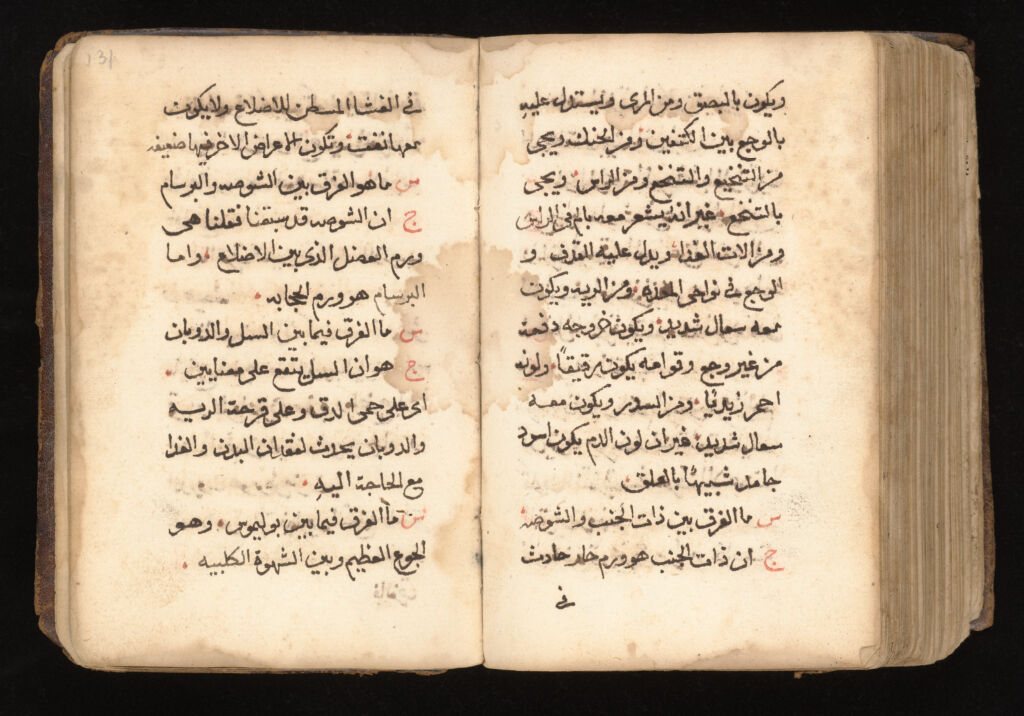 ويكون بالبصق ومن المرى ويستدل عليه
بالوجع بين الكتفين ومن الحنك ويجى
من التنخيع والتنخع ومن الراس ويجى
بالتنخع غير انه يشعر معه بالم فى الراس
ومن الات الغذا ويدل عليه القذف و
الوجع فى نواحى المعدة ومن الريه ويكون
معه سعال شديد ويكون خروجه دفعة
من غير وجع وقوامه يكون رقيقاً ولونه
احمر زبديا ومن الصدر ويكون معه
سعال شديد غير ان لون الدم يكون اسود
جامد شبيهاً بالعلق
س ما الفرق بين ذات الجنب والشوصه
ج ان ذات الجنب هو ورم حار حادث
فى
131
فى الغشا المستبطن للاضلاع ولا يكون
معها نفث وتكون الاعراض الاخر فيها ضعيفه
س ما هو الفرق بين الشوصه والبرسام
ج ان الشوصه قد سبقنا فقلنا هى
ورم العضل الذى بين الاضلاع واما
البرسام هو ورم الحجاب
س ما الفرق فيما بين السل والذوبان
ج هو ان السل يقع على معنايين
اى على حمى الدق وعلى قرحة الريه
والذوبان يحدث لفقدان البدن والغذا
مع الحاجة اليه
س ما الفرق فيما بين بوليموس وهو
الجوع العظيم وبين الشهوة الكلبيه